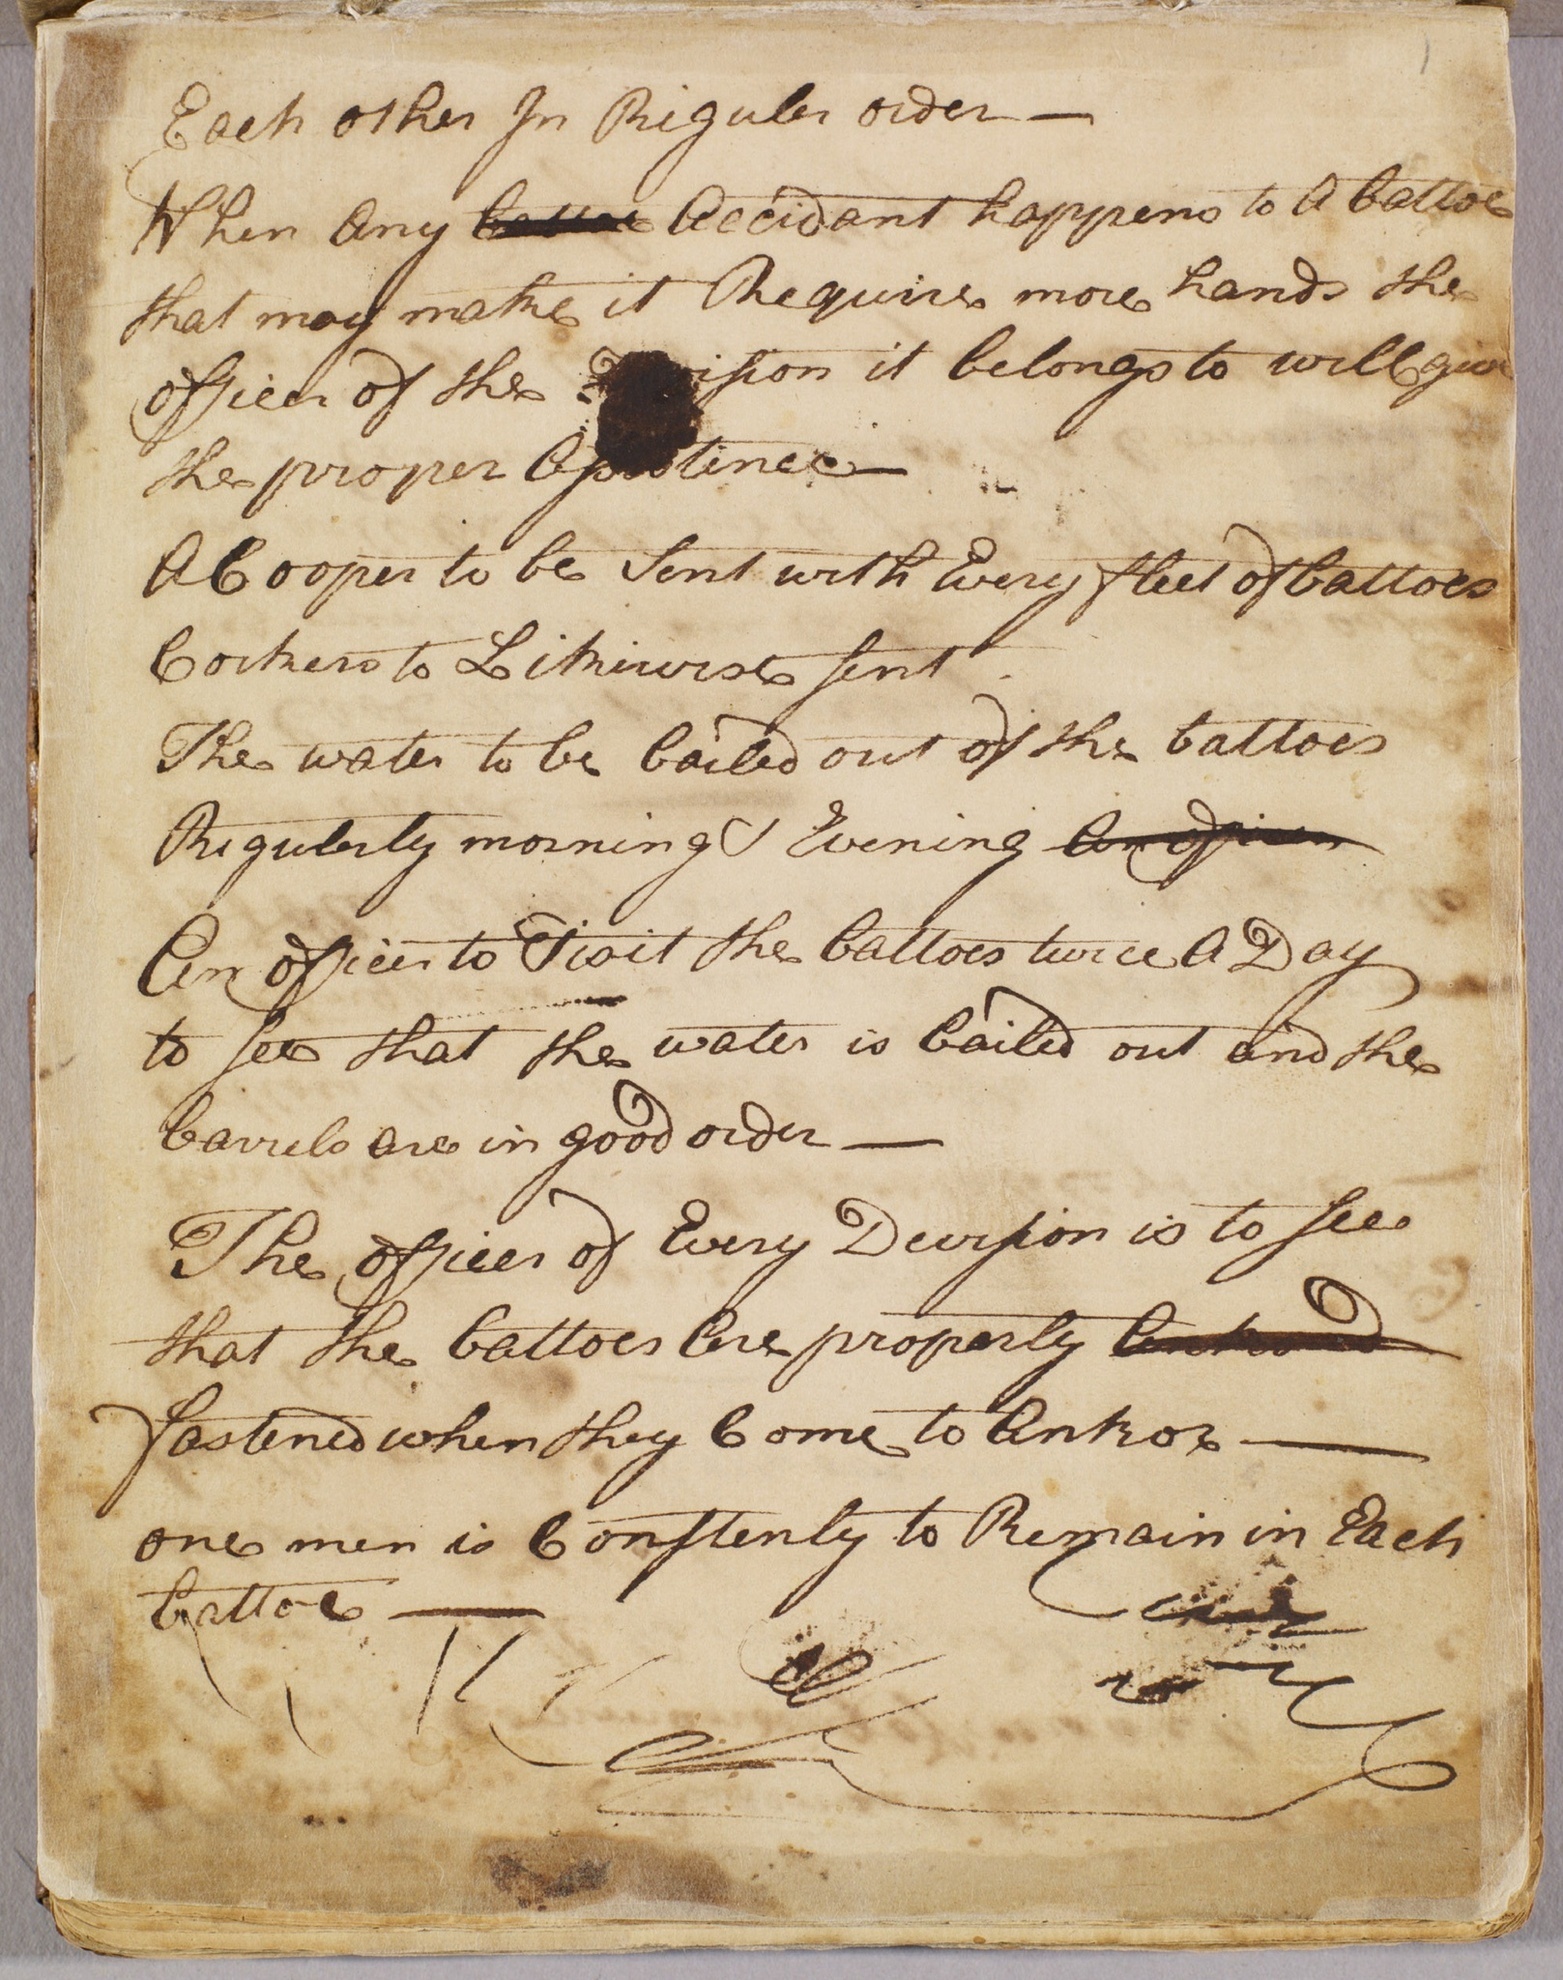 Each other In Riguler order —
When Any battoe Accidant happens to A battoe
that may make it Require more hands the
officer of the ision it belongs to will give
the proper Assistince —
A Cooper to be Sent with Every fleet of battoes
Corkers to Likiwise sent
The water to be bailed out of the battoes
Rigulerly morning & Evening An officer
An officer to Visit the battoes twice A Day
to see that the water is bailed out and the
barrels are in good order —
The officer of Every Devision is to see
that the battoes Are properly Ankored
fastened when they Come to Ankor —
one men is Constenly to Remain in Each
battoe —